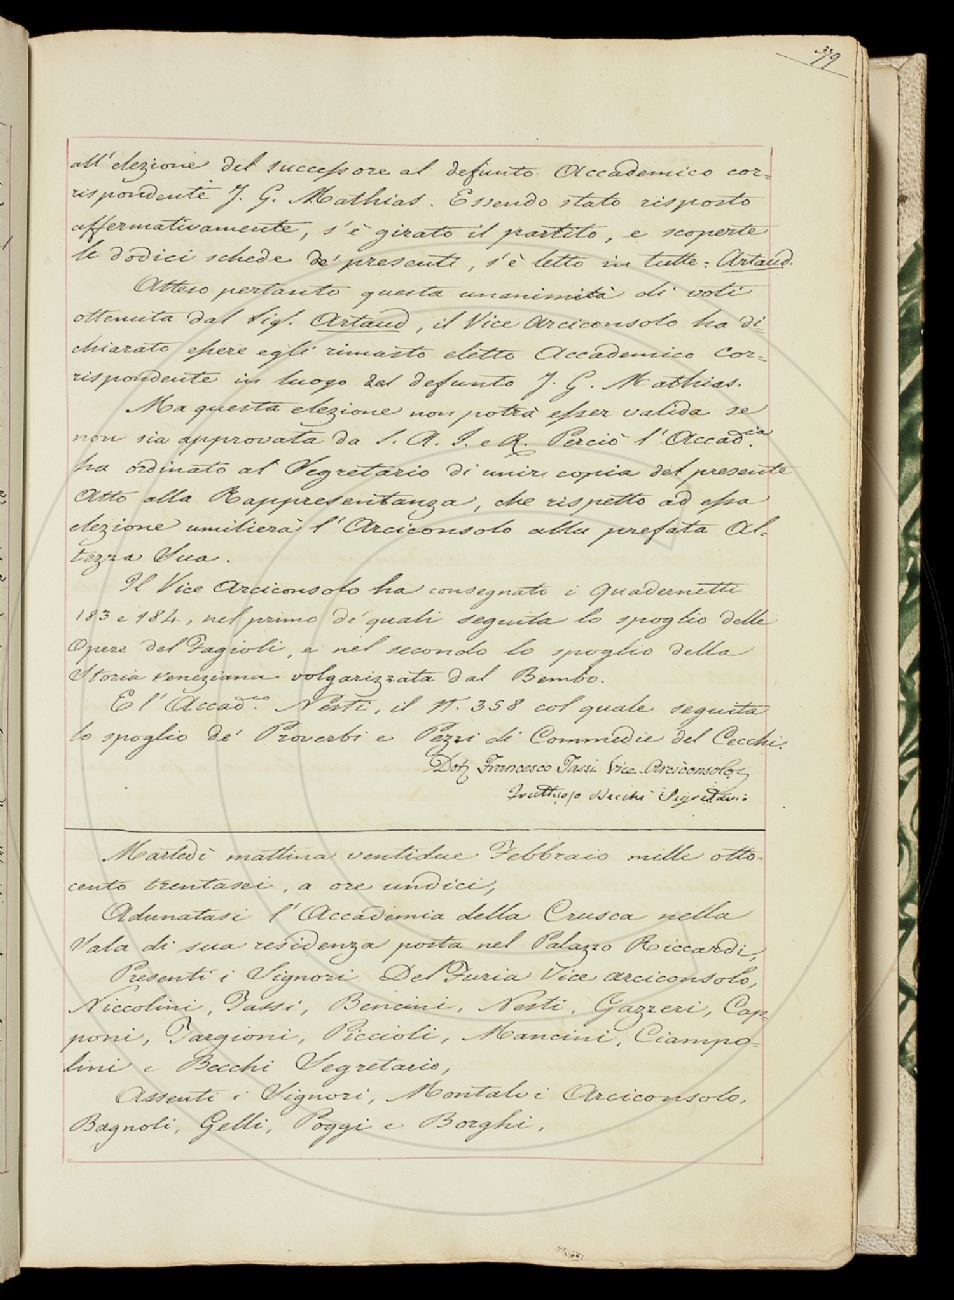 379
all'elezione del successore al defunto Accademico cor=
rispondente J. G. Mathias. Essendo stato risposto
affermativamente, s'è girato il partito, e scoperte
le dodici schede de' presenti, s'è letto in tutte: Artaud.
Atteso pertanto questa unanimità di voti
ottenuta dal Sig. Artaud, il Vice Arciconsolo ha di=
chiarato essere egli rimasto eletto Accademico Cor=
rispondente in luogo del defunto J. G. Mathias.
Ma questa elezione non potrà esser valida se
non sia approvata da S. A. I. e R. Perciò l'Accad.ia
ha ordinato al Segretario di unir copia del presente
Atto alla Rappresentanza, che rispetto ad essa
elezione umilierà l'Arciconsolo alla prefata Al=
tezza Sua.
Il Vice Arciconsolo ha consegnato i quadernetti
183 e 184, nel primo de' quali seguita lo spoglio delle
Opere del Fagioli, e nel secondo lo spoglio della
Storia Veneziana volgarizzata dal Bembo.
E l'Accad.co Nesti, il N. 358 col quale seguita
lo spoglio de' Proverbi e Pezzi di Commedie del Cecchi.
Dott. Francesco Tassi Vice-Arciconsolo
Fruttuoso Becchi Segretario
Martedì mattina ventidue Febbraio mille otto-
cento trentasei, a ore undici,
Adunatasi l'Accademia della Crusca nella
Sala di sua residenza posta nel Palazzo Riccardi,
Presenti i Signori Del Furia Vice arciconsolo,
Niccolini, Tassi, Bencini, Nesti, Gazzeri, Cap=
poni, Targioni, Piccioli, Mancini, Ciampo=
lini e Becchi Segretario,
Assenti i Signori, Montalvi Arciconsolo,
Bagnoli, Gelli, Poggi e Borghi,